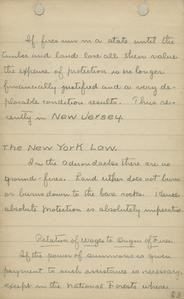 If fires run in a state until the
timber and land lose all their value
the expense of protection is no longer
financially justified and a very de-
plorable condition results. Thus re-
cently in New Jersey.
The New York Law.
In the Adirondacks there are no
ground-fires. Land either does not burn
or burns down to the bare rocks. Hence
absolute protection is absolutely imperative.
Relation of Wages to Origin of Fires.
If the power of summons or given
payment to such assistance is necessary,
except in the National Forests where